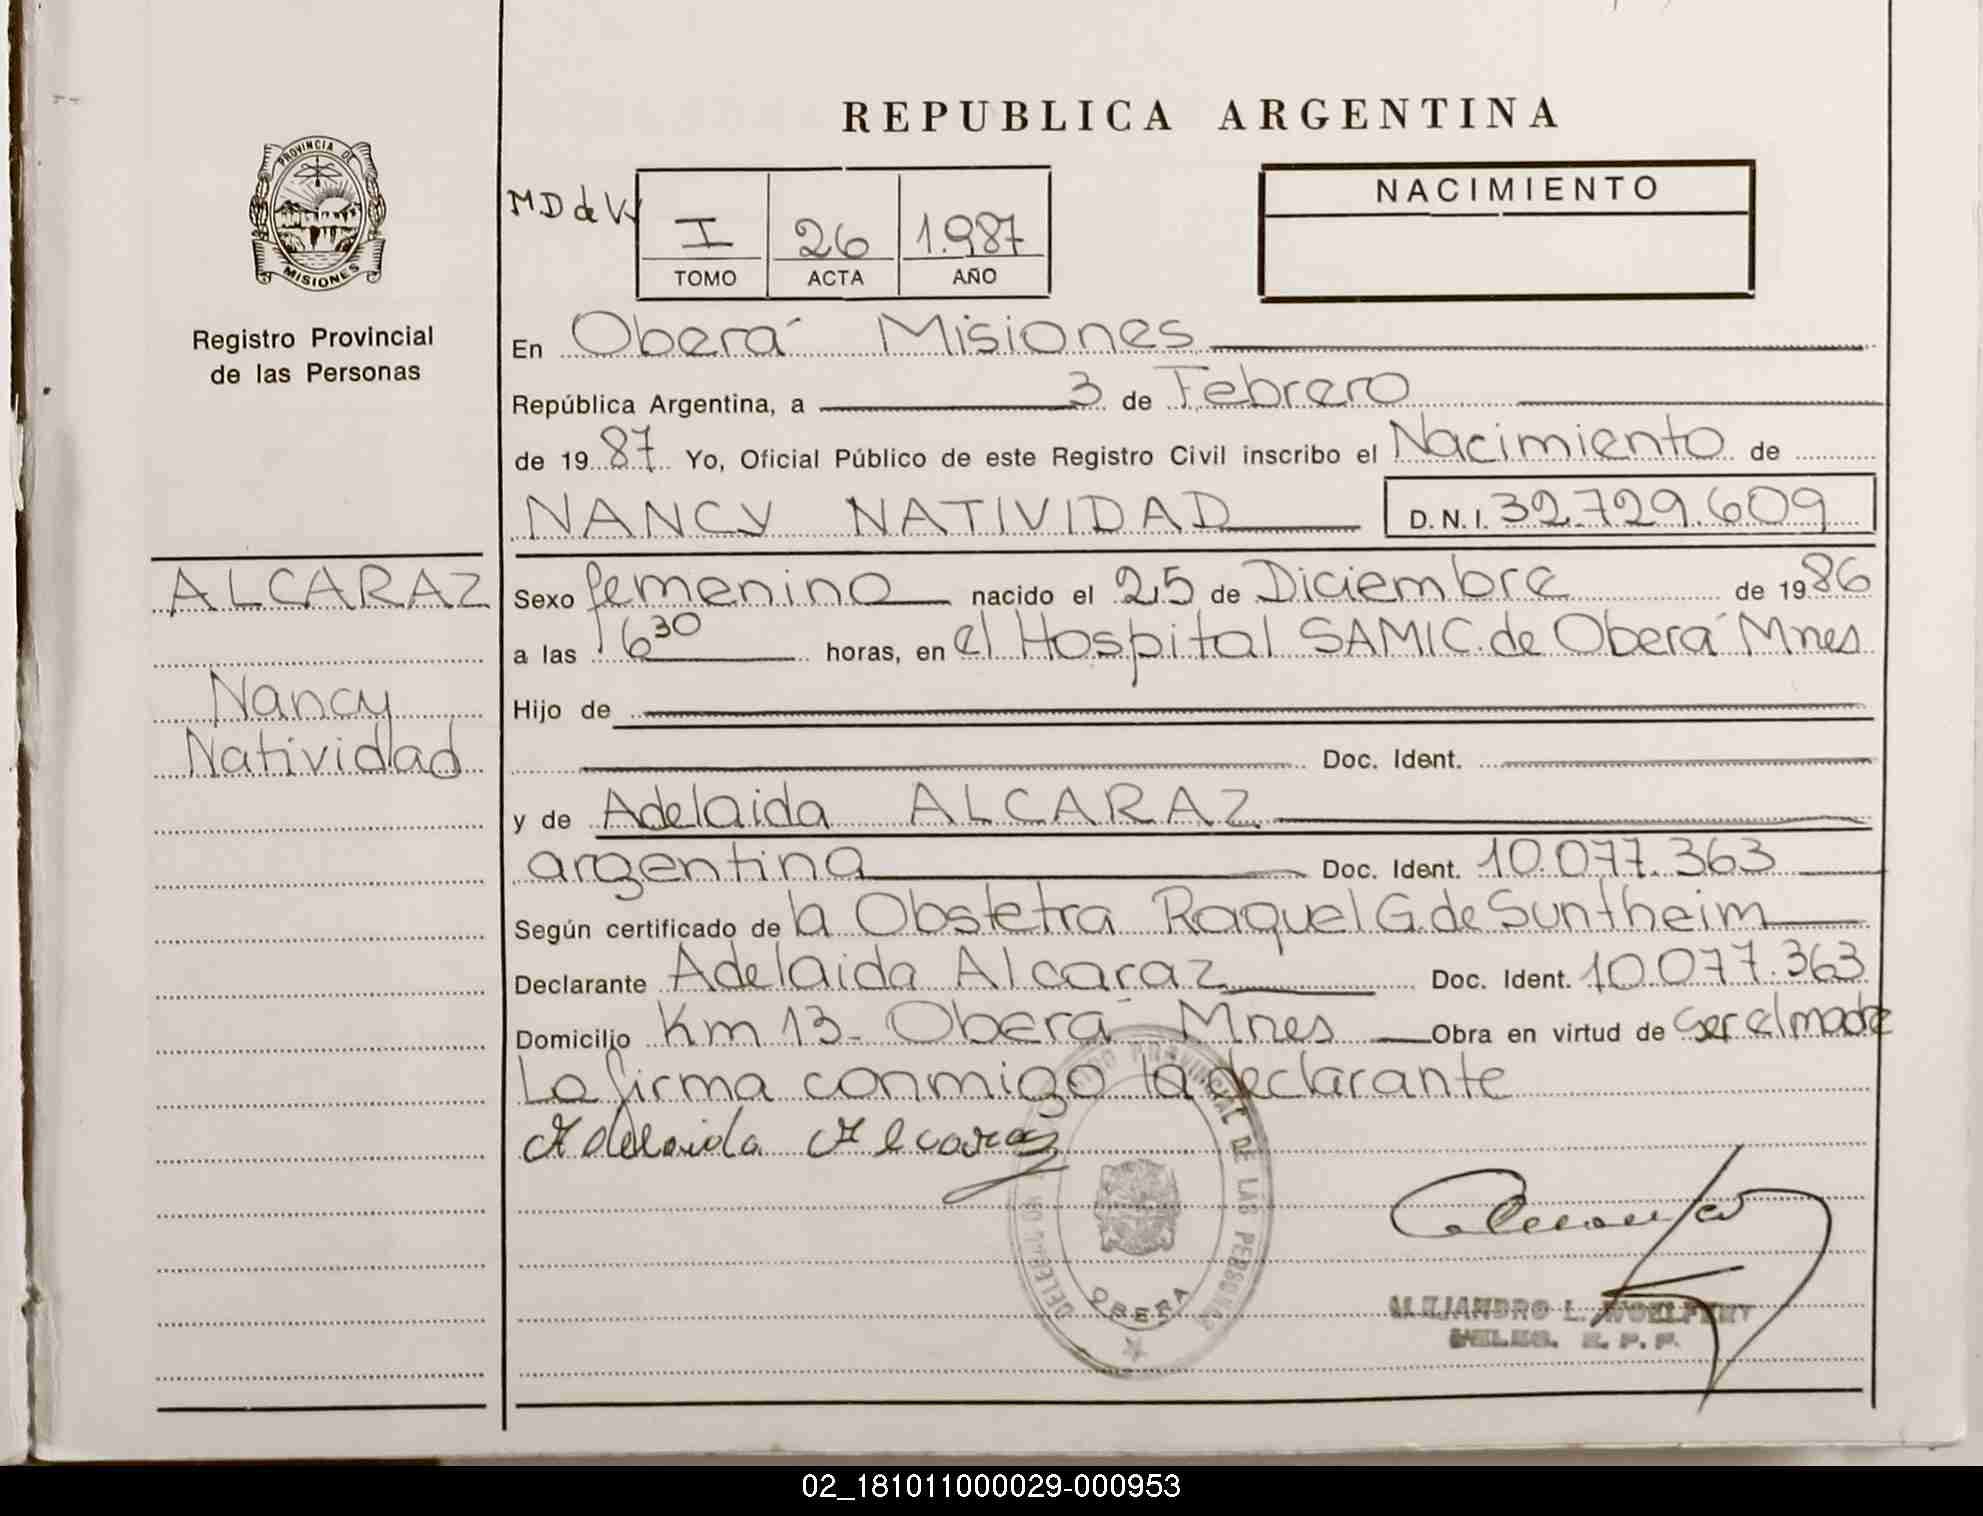 REPUBLICA ARGENTINA
PROVINCIA DE
MISIONES
Registro Provincial
de las Personas
MD de V
I 26 1.987
TOMO ACTA AÑO
NACIMIENTO
En Oberá Misiones
República Argentina, a 3 de Febrero
de 1987 Yo, Oficial Público de este Registro Civil inscribo el Nacimiento de
NANCY NATIVIDAD D.N.I. 32.729.609
ALCARAZ
Nancy
Natividad
Sexo femenino nacido el 25 de Diciembre de 1986
a las 16 30 horas, en el Hospital SAMIC de Oberá Mnes
Hijo de
Doc. Ident.
y de Adelaida ALCARAZ
argentina Doc. Ident. 10.077.363
Según certificado de la Obstetra Raquel G. de Suntheim
Declarante Adelaida Alcaraz Doc. Ident. 10.077.363
Domicilio Km 13 - Oberá Mnes Obra en virtud de ser el madre
La firma conmigo la declarante
Adelaida Alcaraz
PROVINCIAL DE LAS PERSONAS
OBERA
ALEJANDRO L.
02_181011000029-000953